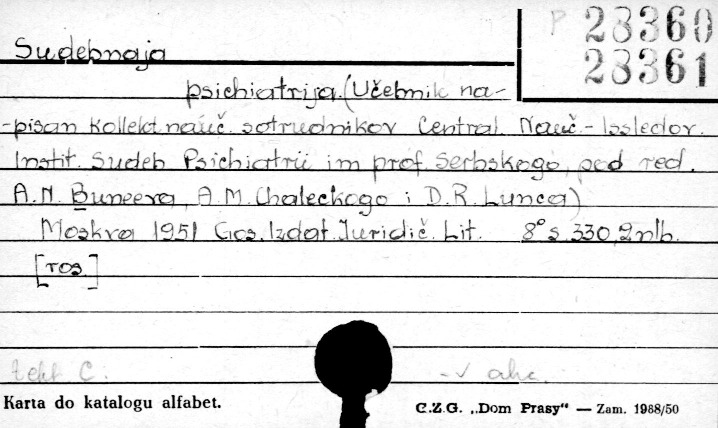 P 28360
28361
Sudebnaja
psichiatrija. (Učebnik na-
-pisan kollekt. nauč. sotrudnikov Central. Nauč.-Issledov.
Instit. Sudeb Psichiatrii im prof. Serbskogo, pod red.
A.N. Buneeva, A.M. Chaleckogo i D.R. Lunca)
Moskva 1951 Gos. Izdat. Juridič. Lit. 8° s. 330, 2 nlb.
[ros.]
C.
Karta do katalogu alfabet. C.Z.G. „Dom Prasy" — Zam. 1988/50